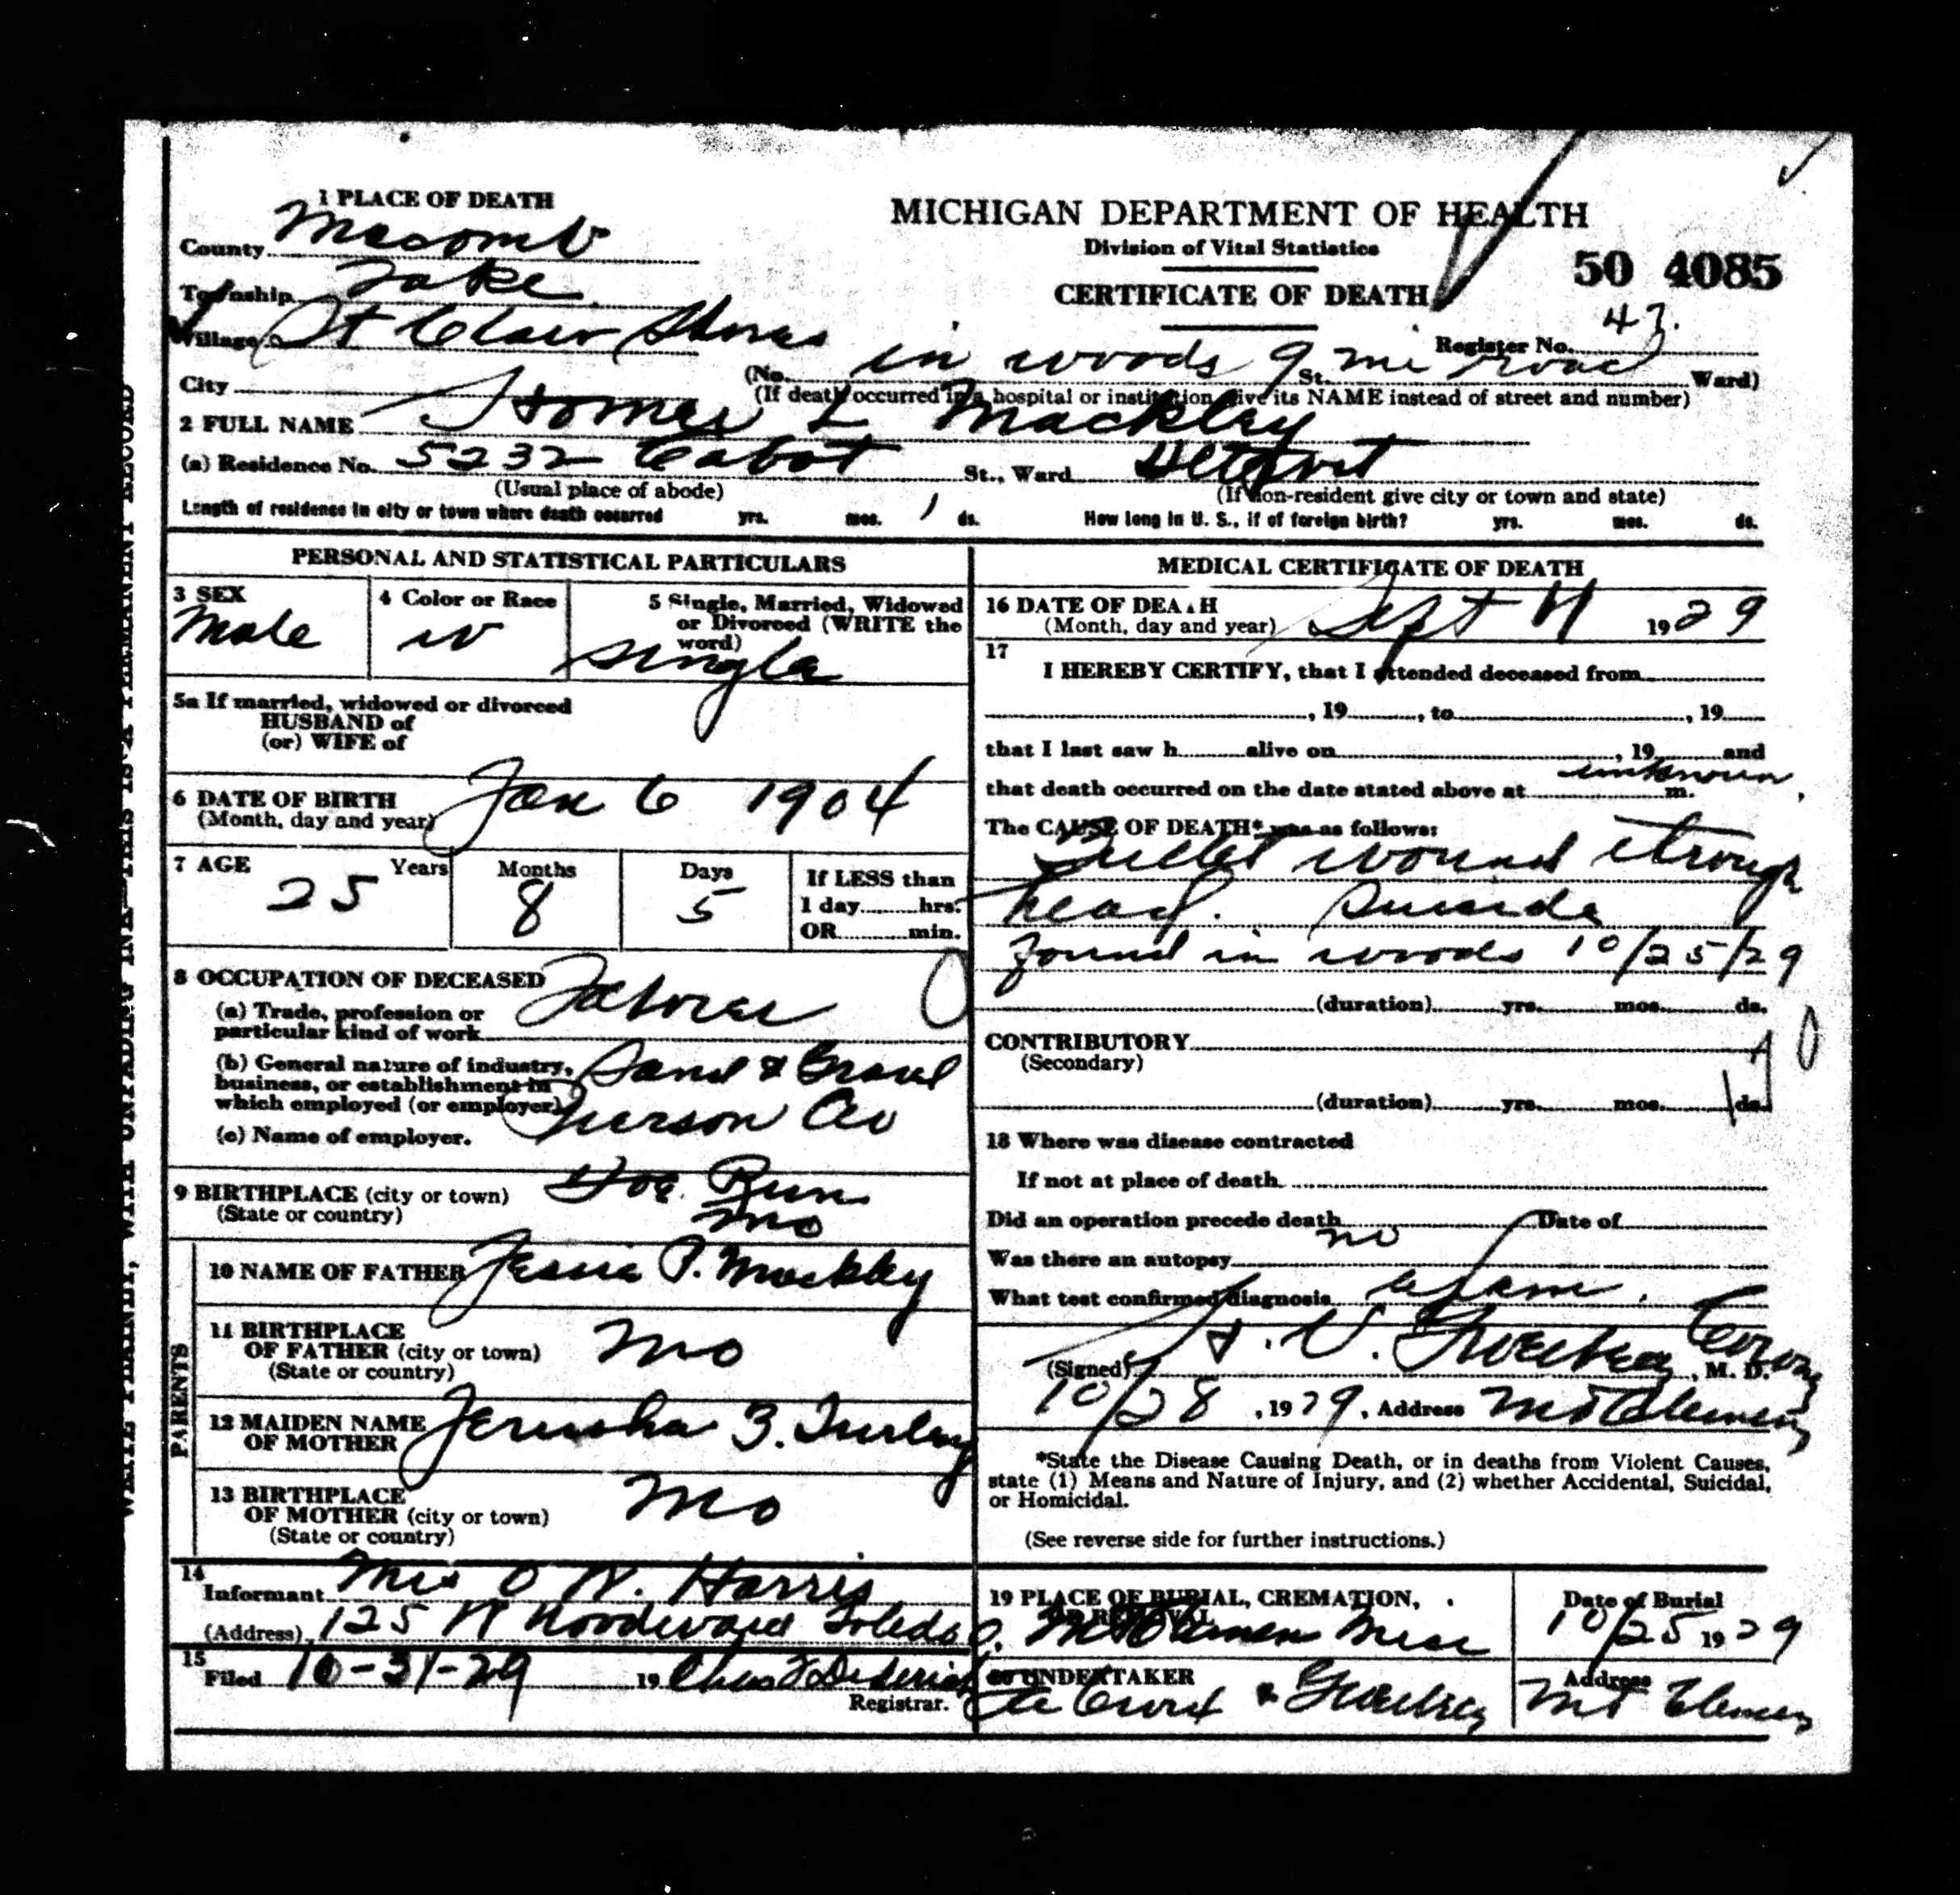 1 PLACE OF DEATH
County Macomb
Township Lake
Village St Clair Shores
City
MICHIGAN DEPARTMENT OF HEALTH
Division of Vital Statistics
CERTIFICATE OF DEATH
50 4085
Register No. 43.
(No. in woods 9 mi road St. Ward)
(If death occurred in a hospital or institution give its NAME instead of street and number)
2 FULL NAME Homer L Mackley
(a) Residence No. 5232 Cabot St., Ward Detroit
(Usual place of abode) (If non-resident give city or town and state)
Length of residence in city or town where death occurred yrs. mos. 1 ds. How long in U. S., if of foreign birth? yrs. mos. ds.
PERSONAL AND STATISTICAL PARTICULARS
3 SEX
Male
4 Color or Race
W
5 Single, Married, Widowed
or Divorced (WRITE the
word)
Single
5a If married, widowed or divorced
HUSBAND of
(or) WIFE of
6 DATE OF BIRTH
(Month, day and year) Jan 6 1904
7 AGE
25 Years
Months
8
Days
5
If LESS than
1 day hrs.
OR min.
8 OCCUPATION OF DECEASED
(a) Trade, profession or
particular kind of work Laborer
(b) General nature of industry,
business, or establishment in
which employed (or employer) Sand & Gravel
(c) Name of employer.
9 BIRTHPLACE (city or town) Doe Run
(State or country) Mo
PARENTS
10 NAME OF FATHER Jessie P. Mackley
11 BIRTHPLACE
OF FATHER (city or town) Mo
(State or country)
12 MAIDEN NAME
OF MOTHER Jerusha B. Turley
13 BIRTHPLACE
OF MOTHER (city or town) Mo
(State or country)
14
Informant Mrs O W. Harris
(Address) 125 N Woodward Toledo O.
15
Filed 10-31-29 19
Registrar.
MEDICAL CERTIFICATE OF DEATH
16 DATE OF DEATH
(Month, day and year) Sept 11 1929
17
I HEREBY CERTIFY, that I attended deceased from
, 19 , to , 19
that I last saw h alive on , 19 and
that death occurred on the date stated above at unknown m.
The CAUSE OF DEATH* was as follows:
Bullet wound through
head. Suicide
found in woods 10/25/29
(duration) yrs. mos. ds.
CONTRIBUTORY
(Secondary)
(duration) yrs. mos. ds.
18 Where was disease contracted
If not at place of death
Did an operation precede death Date of
Was there an autopsy no
What test confirmed diagnosis
(Signed) , M. D.
10/28, 1929, Address Mt Clemens
*State the Disease Causing Death, or in deaths from Violent Causes,
state (1) Means and Nature of Injury, and (2) whether Accidental, Suicidal,
or Homicidal.
(See reverse side for further instructions.)
19 PLACE OF BURIAL, CREMATION,
OR REMOVAL
Mt Clemens Mich
Date of Burial
10/25 1929
20 UNDERTAKER
Address
Mt Clemens